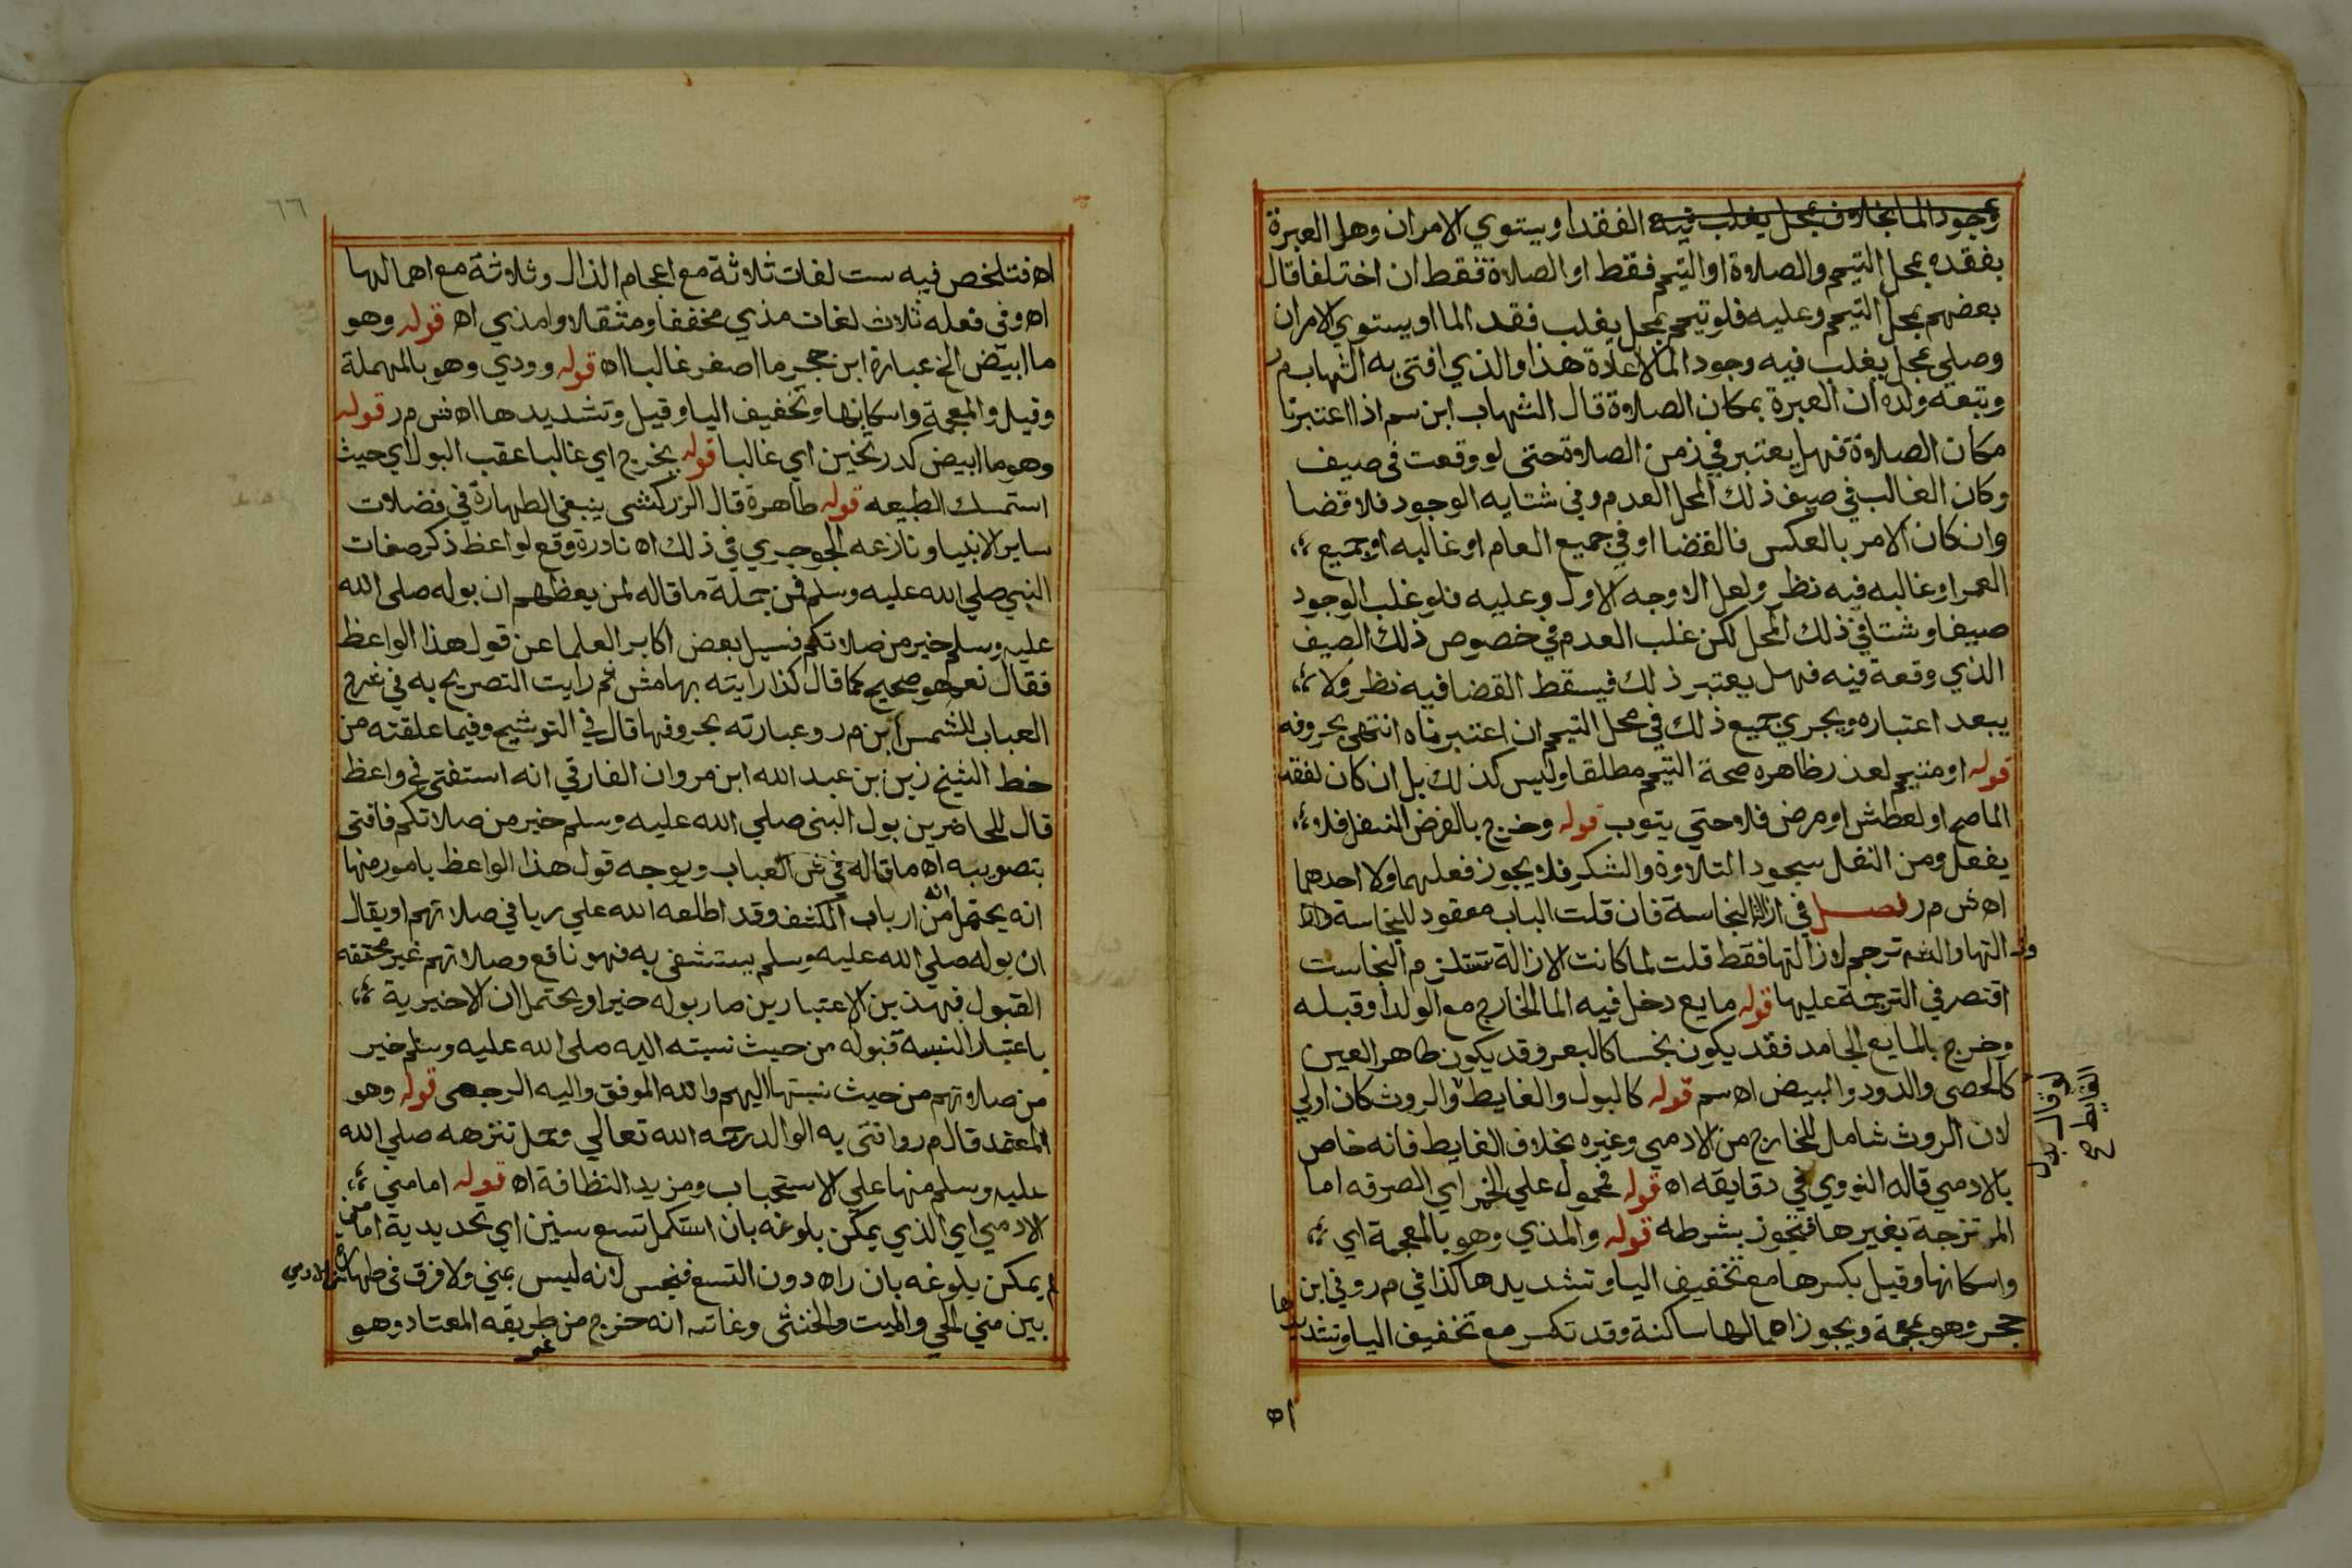 وجود الما بخلاف بمحل يغلب فيه الفقد او يستوي الامران وهل العبرة
بفقده بمحل التيمم والصلاة او التيمم فقط او الصلاة فقط ان اختلفا قال
بعضهم بمحل التيمم وعليه فلو تيمم بمحل يغلب فقد الما او يستوي الامران
وصلي بمحل يغلب فيه وجود الما لا اعادة هذا والذي افتي به الشهاب م ر
وتبعه ولده ان العبرة بمكان الصلاة قال الشهاب ابن سم اذا اعتبرنا
مكان الصلاة فهل يعتبر في زمن الصلاة حتى لو وقعت في صيف
وكان الغالب في صيف ذلك المحل العدم وفي شتايه الوجود فلا قضا
وان كان الامر بالعكس فالقضا او في جميع العام او غالبه او جميع
العمر او غالبه فيه نظر ولعل الاوجه الاول وعليه فلو غلب الوجود
صيفا وشتا في ذلك المحل لكن غلب العدم في خصوص ذلك الصيف
الذي وقعة فيه فهل يعتبر ذلك فيسقط القضا فيه نظر ولا
يبعد اعتباره ويجري جميع ذلك في محل التيمم ان اعتبرناه انتهى بحروفه
قوله او متيمم لعذر ظاهره صحة التيمم مطلقا وليس كذلك بل ان كان لفقد
الما صح او لعطش او مرض فلا حتي يتوب قوله وخرج بالفرض النفل فلا
يفعل ومن النفل سجود التلاوة والشكر فلا يجوز فعلهما ولا احدهما
اه ش م ر فصل في ازالة النجاسة فان قلت الباب معقود للنجاسة
التها والشم ترجم لازالتها فقط قلت لما كانت الازالة تستلزم النجاست
اقتصر في الترجمة عليها قوله مايع دخل فيه الما الخارج مع الولد او قبله
وخرج بالمايع الجامد فقد يكون نجسا كالبعر وقد يكون طاهر العين
كالحصى والدود والبيض اه سم قوله كالبول والغايط والروث كان اولي
لو قال بدل
الغايط ع
لان الروث شامل للخارج من الادمي وغيره بخلاف الغايط فانه خاص
بالادمي قاله النووي في دقايقه اه قوله فمحمول علي الخمر اي الصرفه اما
الممتزجة بغيرها فتجوز بشرطه قوله والمذي وهو بالمعجمة اي
واسكانها وقيل بكسرها مع تخفيف اليا وتشديدها كذا في م ر وفي ابن
حجر وهو بمعجمة ويجوز اهمالها ساكنة وقد تكسر مع تخفيف اليا وتشديدها
اه
٦٦
اه فتلخص فيه ست لغات ثلاثة مع اعجام الذال وثلاثة مع اهمالها
اه وفي فعله ثلاث لغات مذي مخففا ومثقلا وامذي اه قوله وهو
ما ابيض الخ عبارة ابن حجر ما اصفر غالبا اه قوله وودي وهو بالمهملة
وقيل والمعجمة واسكانها وتخفيف اليا وقيل وتشديدها اه ش م ر قوله
وهو ما ابيض كدر ثخين اي غالبا قوله يخرج اي غالبا عقب البول اي حيث
استمسك الطبيعه قوله طاهرة قال الزركشي ينبغي الطهارة في فضلات
ساير الانبيا ونازعه الجوجري في ذلك اه نادرة وقع لواعظ ذكر صفات
النبي صلي الله عليه وسلم فمن جملة ما قاله لمن يعظهم ان بوله صلى الله
عليه وسلم خير من صلاتكم فسيل بعض اكابر العلما عن قول هذا الواعظ
فقال نعم هو صحيح كما قال كذا رايته بهامش ثم رايت التصريح به في شرح
العباب للشمس ابن م ر وعبارته بحروفها قال في التوشيح وفيما علقته من
خط الشيخ زين بن عبد الله ابن مروان الفارقي انه استفتى في واعظ
قال للحاضرين بول النبي صلي الله عليه وسلم خير من صلاتكم فافتى
بتصويبه اه ما قاله في ش العباب ويوجه قول هذا الواعظ بامور منها
انه يحتمل انه من ارباب الكشف وقد اطلعه الله علي ريا في صلاتهم او يقال
ان بوله صلي الله عليه وسلم يستشفى به فهو نافع وصلاتهم غير محققه
القبول فبهذين الاعتبارين صار بوله خيرا ويحتمل ان الاخيرية
باعتبار النسبه فبوله من حيث نسبته اليه صلى الله عليه وسلم خير
من صلاتهم من حيث نسبتها اليهم والله الموفق واليه الرجعى قوله وهو
المعتمد قال م ر وافتى به الوالد رحمه الله تعالي وحمل تنزهه صلي الله
عليه وسلم منها علي الاستحباب ومزيد النظافة اه قوله اما مني
الادمي اي الذي يمكن بلوغه بان استكمل تسع سنين اي تحديدية اما من
لم يمكن بلوغه بان راه دون التسع فنجس لانه ليس بمني ولا فرق في طهارة مني الادمي
بين مني الحي والميت والخنثى وغايته انه خرج من غير طريقه المعتاد وهو